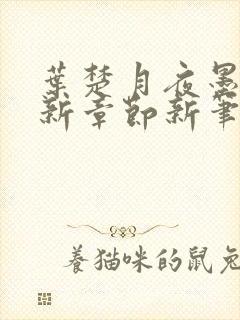 葉楚月夜墨
新章節新筆
養猫咪的鼠兔